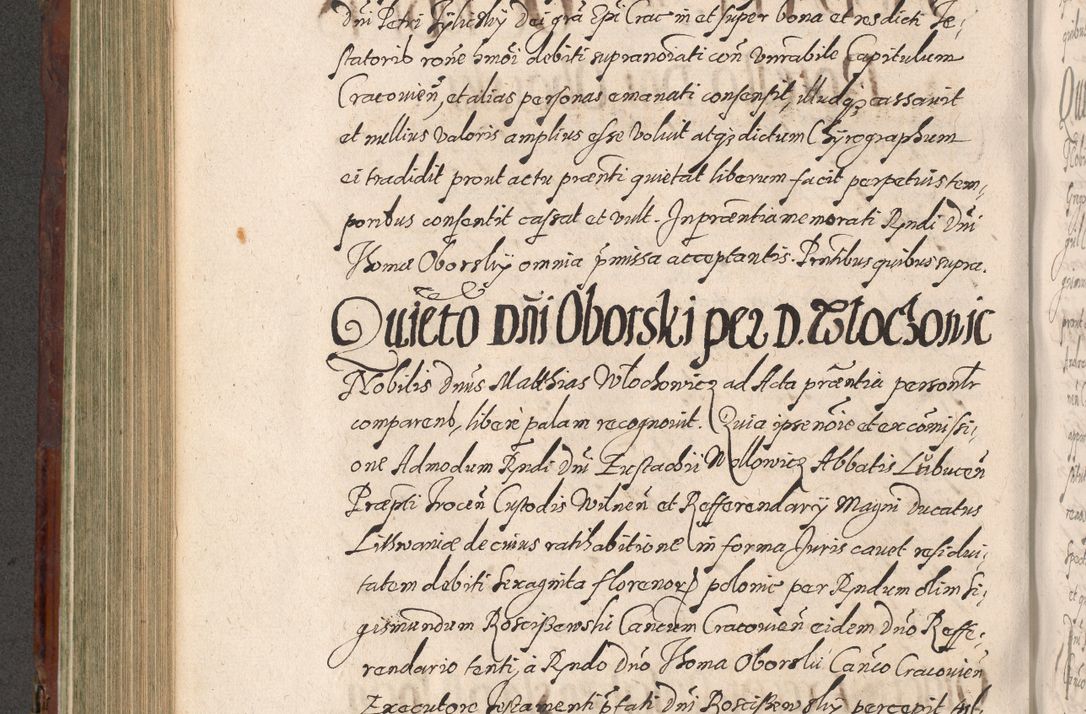 Dni Petri Tylicky Dei gra Epi Crac in et super bona et res dicti Te,
statoris rone hmoi debiti supranoiati con Vnrabile Capitulum
Cracouien, et alias personas emanati consensit, illudq3 cassauit
et nullius valoris amplius esse voluit atq3 dictum Chyrographum
ei tradidit prout actu prænti quietat liberum facit perpetuis tem,
poribus consentit cassat et vult. In præntia memorati Rndi Dni
Thomæ Oborsky omnia pmissa acceptantis. Pntibus quibus supra.
Quieto Dni Oborski per D. Włochowic
Nobilis Dnus Matthias Włochowicz ad Acta præntia personlr
comparens, libere palam recognouit. Quia ipse noie et ex comissi,
one Admodum Rndi Dni Eustachii Wollowicz Abbatis Lubucen
Præpti Trocen Custodis Wilnen et Refferendarÿ Magni Ducatus
Lithwaniæ de cuius ratihabitione in forma Juris cauet residui,
tatem debiti sexaginta florenor polonic per Rndum olim Si,
gismundum Rosciszewski Cancum Cracouien eidem Dno Reffe,
rendario tenti, à Rndo Dno Thoma Oborski Canco Cracouien
Executore testamenti pfati Dni Rosciszewsky percepit